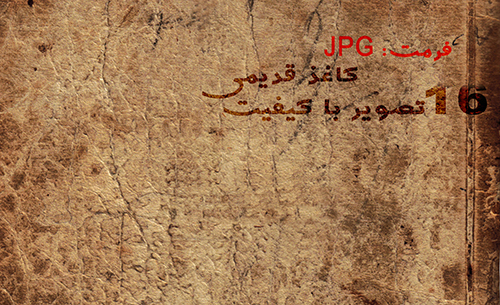 فرمت: JPG
کاغذ قدیمی
16 تصویر با کیفیت